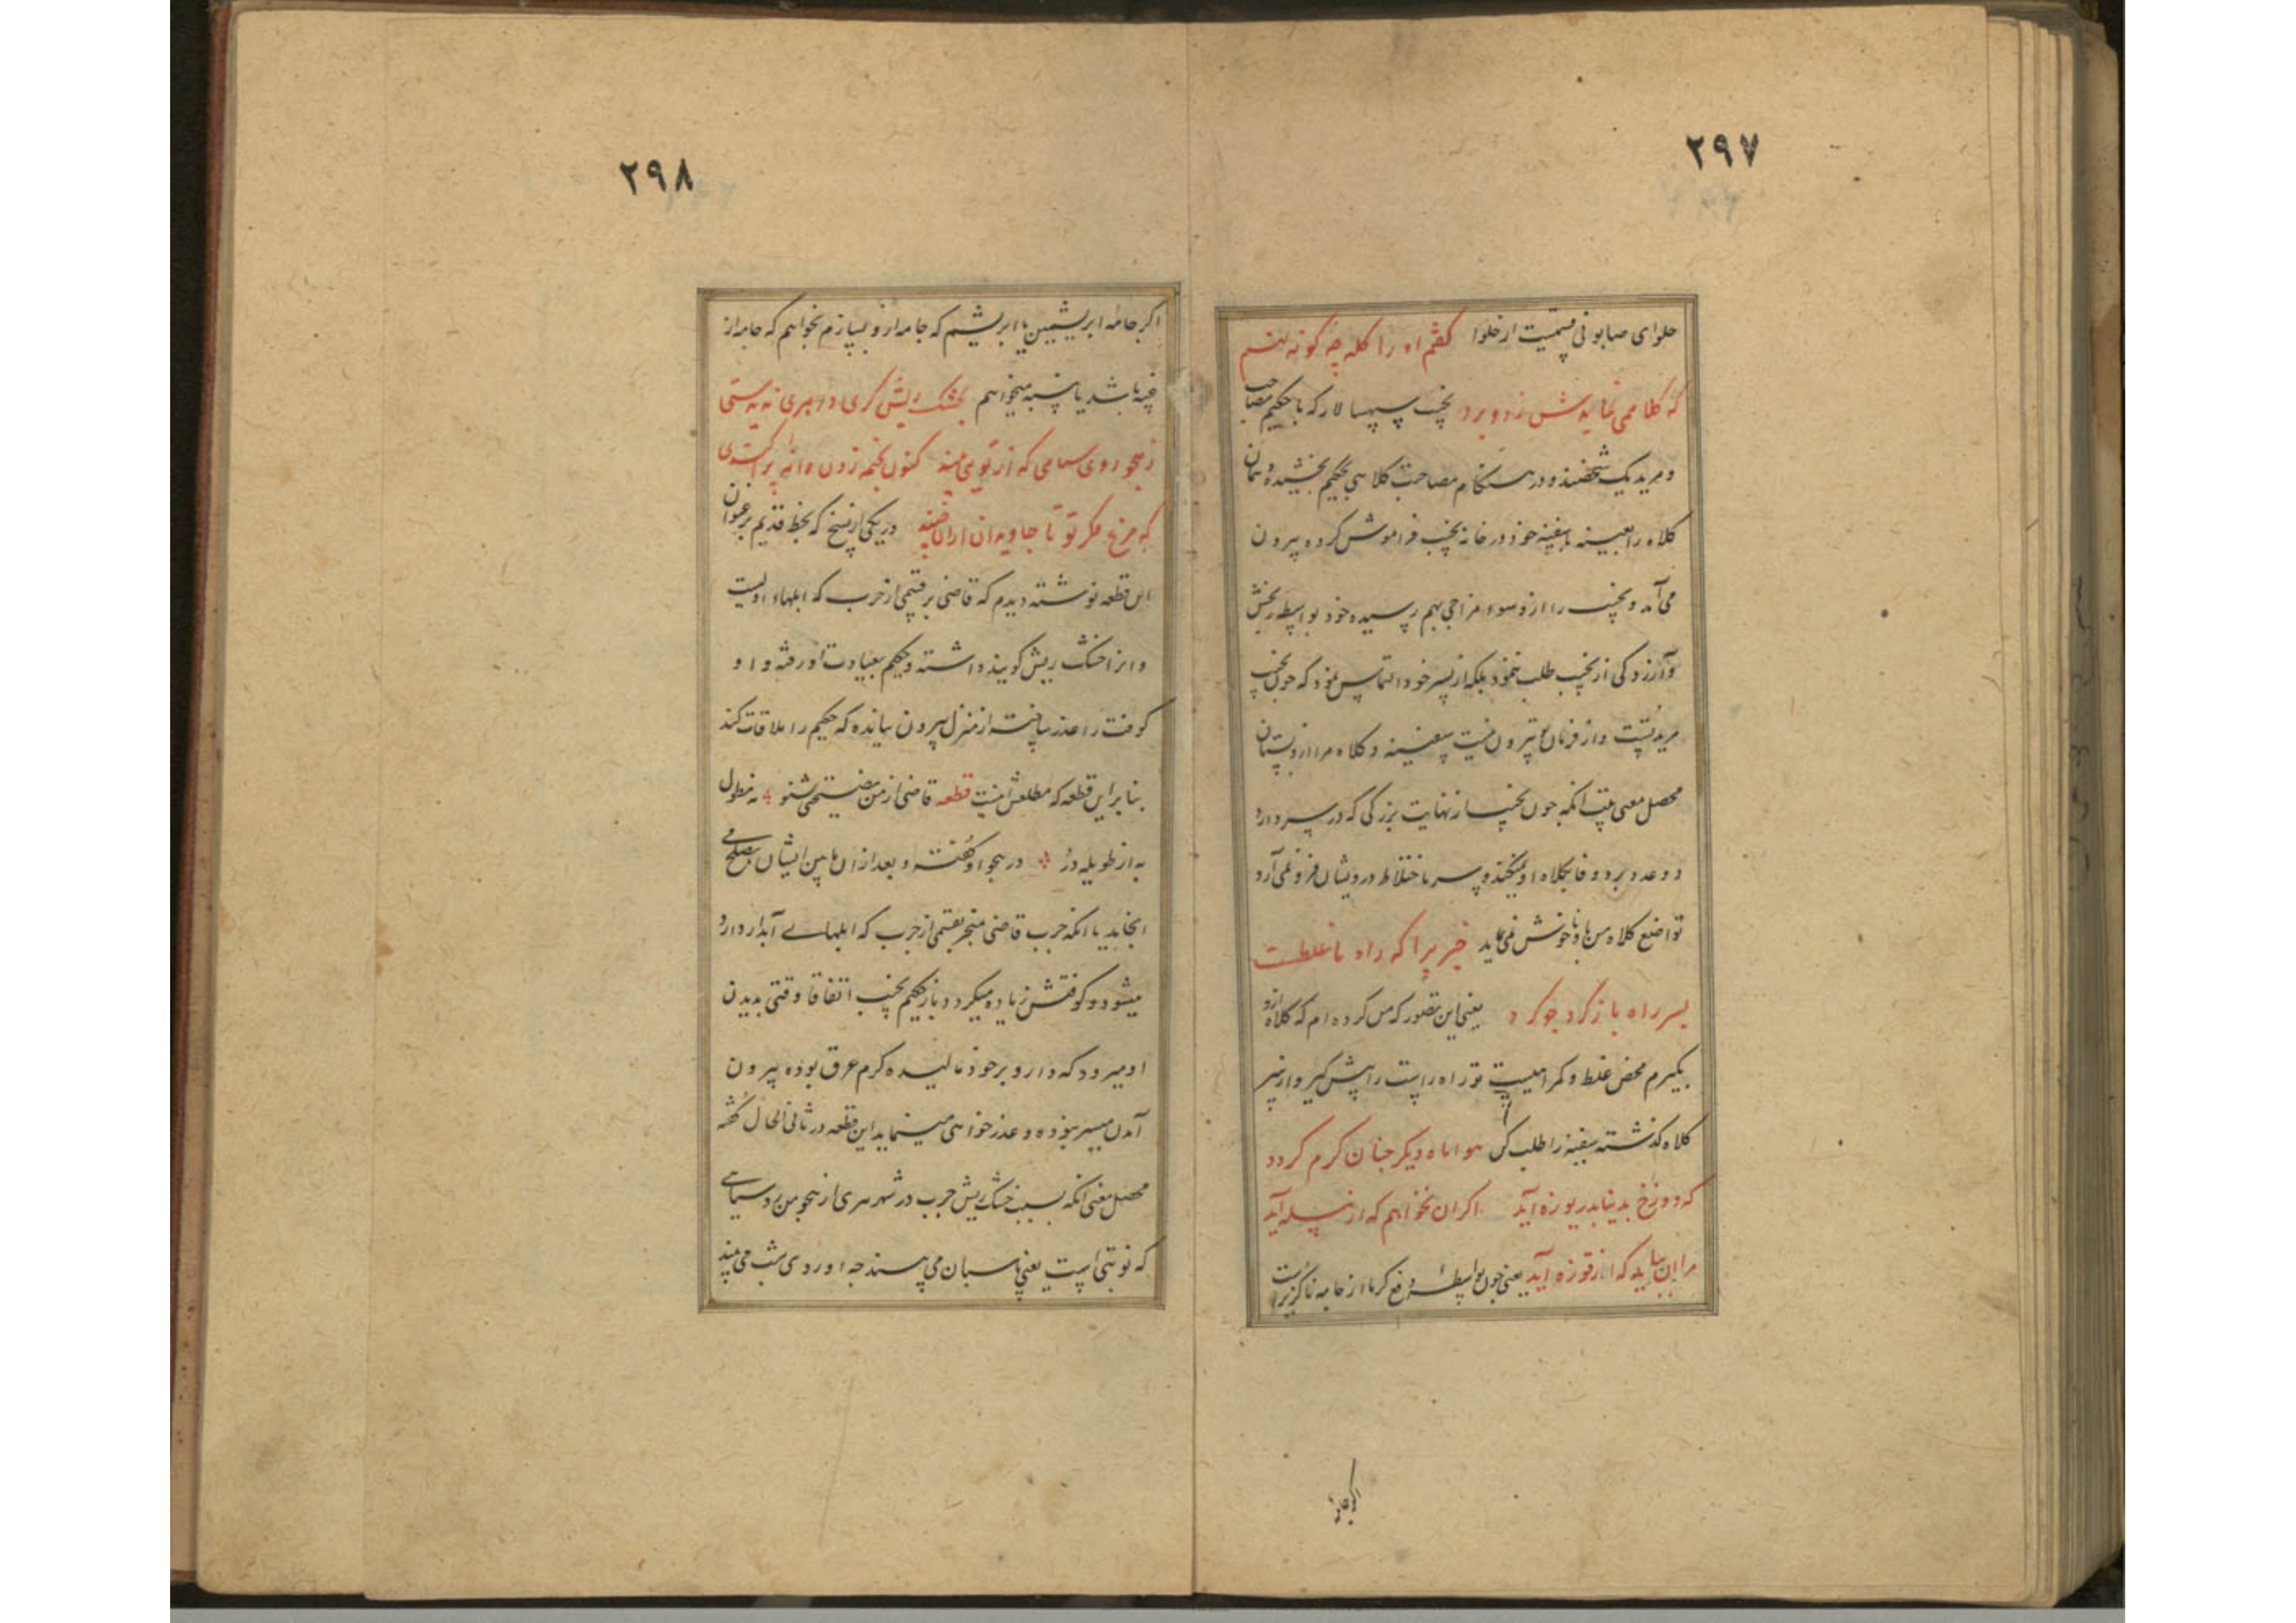 ٢٩٧
حلوای صابونی قسمیست از حلوا گفتم او را کله چه گونه نهم
که کلا می نماید وش زد و برد نجیب سپهسالار که با حکیم مصاحب
و مرید یک شخصند و در هنگام مصاحبت کلاهی بحکیم بخشیده و همان
کلاه را بعینه بسفینه خود در خانه نجیب فراموش کرده بیرون
می آمد و نجیب را ازو سوء مزاجی بهم رسیده خود بواسطه رنجش
و آرزدگی از نجیب طلب ننمود بلکه از پسر خود التماس نمود که چون نجیب
مرید تست و از فرمان تو بیرون نیست سفینه و کلاه مرا ازو بستان
محصل معنی بیت انکه چون نجیب از نهایت بزرگی که در سر دارد
دو عدد برد و فا بکلاه او نمیکند و سر باختلاط درویشان فرو نمی آرد
تواضع کلاه من باو ناخوش می نماید خیر برا که راه ما غلطست
بسر راه باز گرد چو گرد یعنی این تصور که من کرده ام که کلاه ازو
بگیرم محض غلط و گمراهیست تو راه راست را پیش گیر و از سر
کلاه گذشته سفینه را طلب کن هوا ماه دیگر چنان گرم گردد
که دوزخ بدنیا بدریوزه آید اگر ان نخواهم که از پیله آید
مرا ان بباید که از قوزه آید یعنی چون بواسطه دفع گرما از جامه ناگزیر است
اگر جامه
٢٩٨
اگر جامه ابریشمین یا ابریشم که جامه ازو بسازم نخواهم که جامه از
پنبه باشد یا پنبه میخواهم بخشک ریش گری در هری نه به ستی
ز هجو روی سیاهی که از تو می بیند کنون بخیمه زدن دانه بر
که مرغ مگر تو تا جاویدان ازان چیند در یکی از نسخ که بخط قدیم بر عنوان
این قطعه نوشته دیدم که قاضی بر قسمی از جرب که ابلهاء اولیت
و انرا خشک ریش گویند داشته و حکیم بعیادت او رفته و او
کوفت را عذر ساخته از منزل بیرون نیامده که حکیم را ملاقات کند
بنا براین قطعه که مطلعش اینست قطعه قاضی از من نصیحتی شنو نه مطول
به از طویله در در هجو او گفته و بعد ازان مابین ایشان بصلح می
انجامد یا انکه جرب قاضی منجر بقسمی از جرب که ابلهای آبدار دارد
میشود و کوفتش زیاده میگردد باز حکیم نجیب اتفاقا وقتی بدیدن
او میرود که دارو بر خود مالیده گرم عرق بوده بیرون
آمدن میسر نبوده و عذر خواهی مینماید این قطعه در ثانی الحال گفته
محصل معنی انکه بسبب خشک ریش جرب در شهر هری از هجو من رو سیاهی
که نوبتی است یعنی پاسبان می پسندد چه او روی شب می بیند